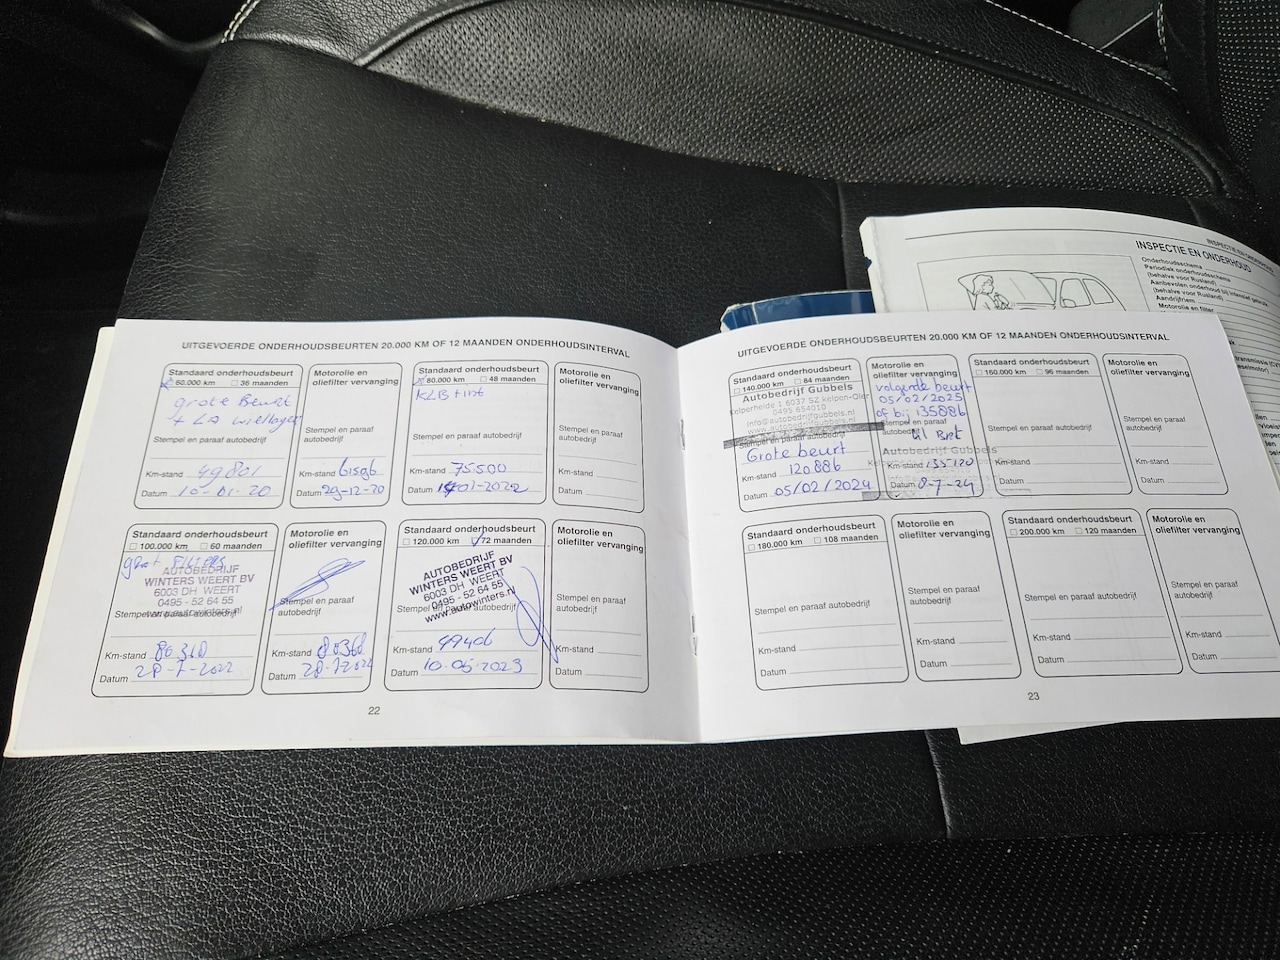 UITGEVOERDE ONDERHOUDSBEURTEN 20.000 KM OF 12 MAANDEN ONDERHOUDSINTERVAL
Standaard onderhoudsbeurt
60.000 km 36 maanden
grote Beurt
Stempel en paraaf autobedrijf
Km-stand 49801
Datum 10-01-20
Motorolie en
oliefilter vervanging
Stempel en paraaf
autobedrijf
Km-stand 61596
Datum 29-12-20
Standaard onderhoudsbeurt
80.000 km 48 maanden
KLB
Stempel en paraaf autobedrijf
Km-stand 75500
Datum 01-2022
Motorolie en
oliefilter vervanging
Stempel en paraaf
autobedrijf
Km-stand
Datum
Standaard onderhoudsbeurt
100.000 km 60 maanden
FILTERS
AUTOBEDRIJF
WINTERS WEERT BV
6003 DH WEERT
0495 - 52 64 55
Stempel en paraaf autobedrijf
www.autowinters.nl
Km-stand 80360
Datum 28-7-2022
Motorolie en
oliefilter vervanging
Stempel en paraaf
autobedrijf
Km-stand 80360
Datum 28-7-2022
Standaard onderhoudsbeurt
120.000 km 72 maanden
AUTOBEDRIJF
WINTERS WEERT BV
6003 DH WEERT
0495 - 52 64 55
Stempel en paraaf autobedrijf
www.autowinters.nl
Km-stand 99406
Datum 10-05-2023
Motorolie en
oliefilter vervanging
Stempel en paraaf
autobedrijf
Km-stand
Datum
22
UITGEVOERDE ONDERHOUDSBEURTEN 20.000 KM OF 12 MAANDEN ONDERHOUDSINTERVAL
Standaard onderhoudsbeurt
140.000 km 84 maanden
Autobedrijf Gubbels
Kelperheide 1 6037 SZ Kelpen-Oler
0495 654010
info@autobedrijfgubbels.nl
www.autobedrijfgubbels.nl
Stempel en paraaf autobedrijf
Grote beurt
Km-stand 120886
Datum 05/02/2024
Motorolie en
oliefilter vervanging
volgende beurt
05/02/2025
of bij 135886
Stempel en paraaf
autobedrijf
Kl Brt
Autobedrijf Gubbels
Km-stand 135120
Datum 8-7-24
Standaard onderhoudsbeurt
160.000 km 96 maanden
Stempel en paraaf autobedrijf
Km-stand
Datum
Motorolie en
oliefilter vervanging
Stempel en paraaf
autobedrijf
Km-stand
Datum
Standaard onderhoudsbeurt
180.000 km 108 maanden
Stempel en paraaf autobedrijf
Km-stand
Datum
Motorolie en
oliefilter vervanging
Stempel en paraaf
autobedrijf
Km-stand
Datum
Standaard onderhoudsbeurt
200.000 km 120 maanden
Stempel en paraaf autobedrijf
Km-stand
Datum
Motorolie en
oliefilter vervanging
Stempel en paraaf
autobedrijf
Km-stand
Datum
23
INSPECTIE EN ONDERHOUD
INSPECTIE EN ONDERHOUD
Onderhoudsschema
Periodiek onderhoudsschema
(behalve voor Rusland)
Aanbevolen onderhoud bij intensief gebruik
(behalve voor Rusland)
Aandrijfriem
Motorolie en filter